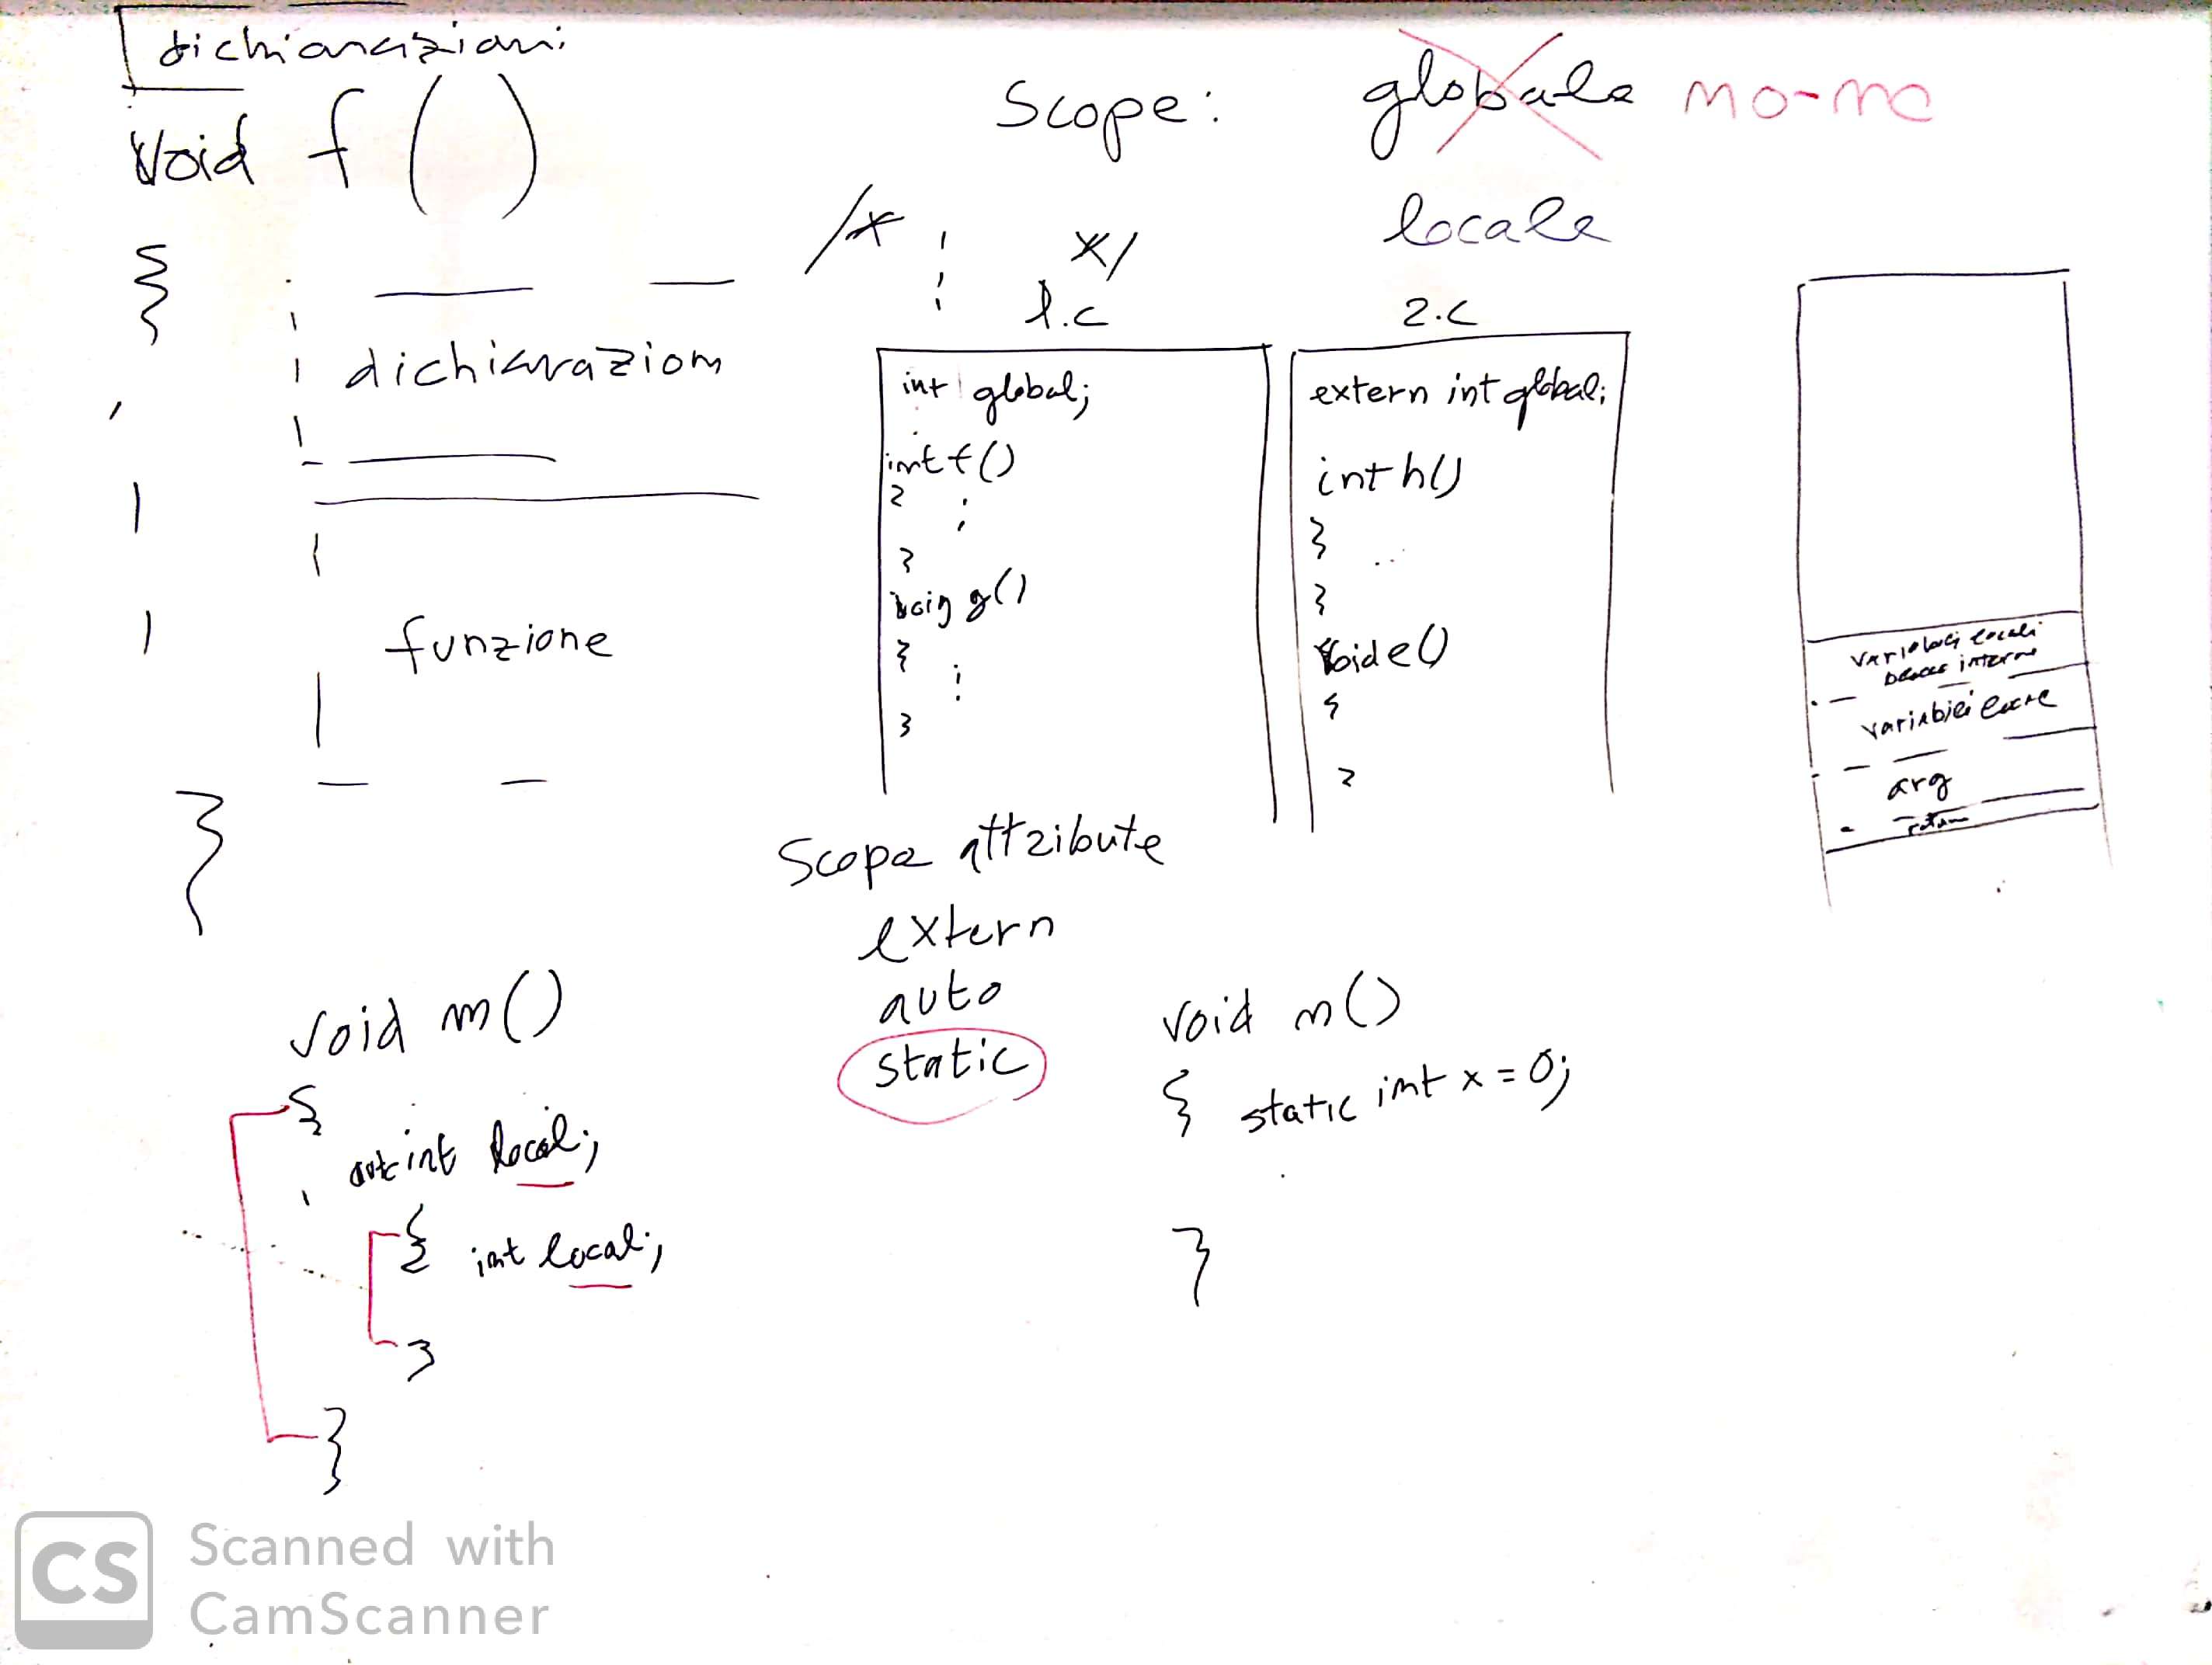 dichiarazioni
void f ()
{
dichiarazioni
funzione
}
Scope: globale no-no
locale
/* */
1.c
int global;
int f()
{
}
g()
{
}
2.c
extern int global;
int h()
{
}
void e()
{
}
variabili locali
interno
variabili
arg
return
Scope attribute
extern
auto
static
void m()
{
auto int local;
{ int local;
}
}
void m()
{ static int x = 0;
}
CS Scanned with
CamScanner